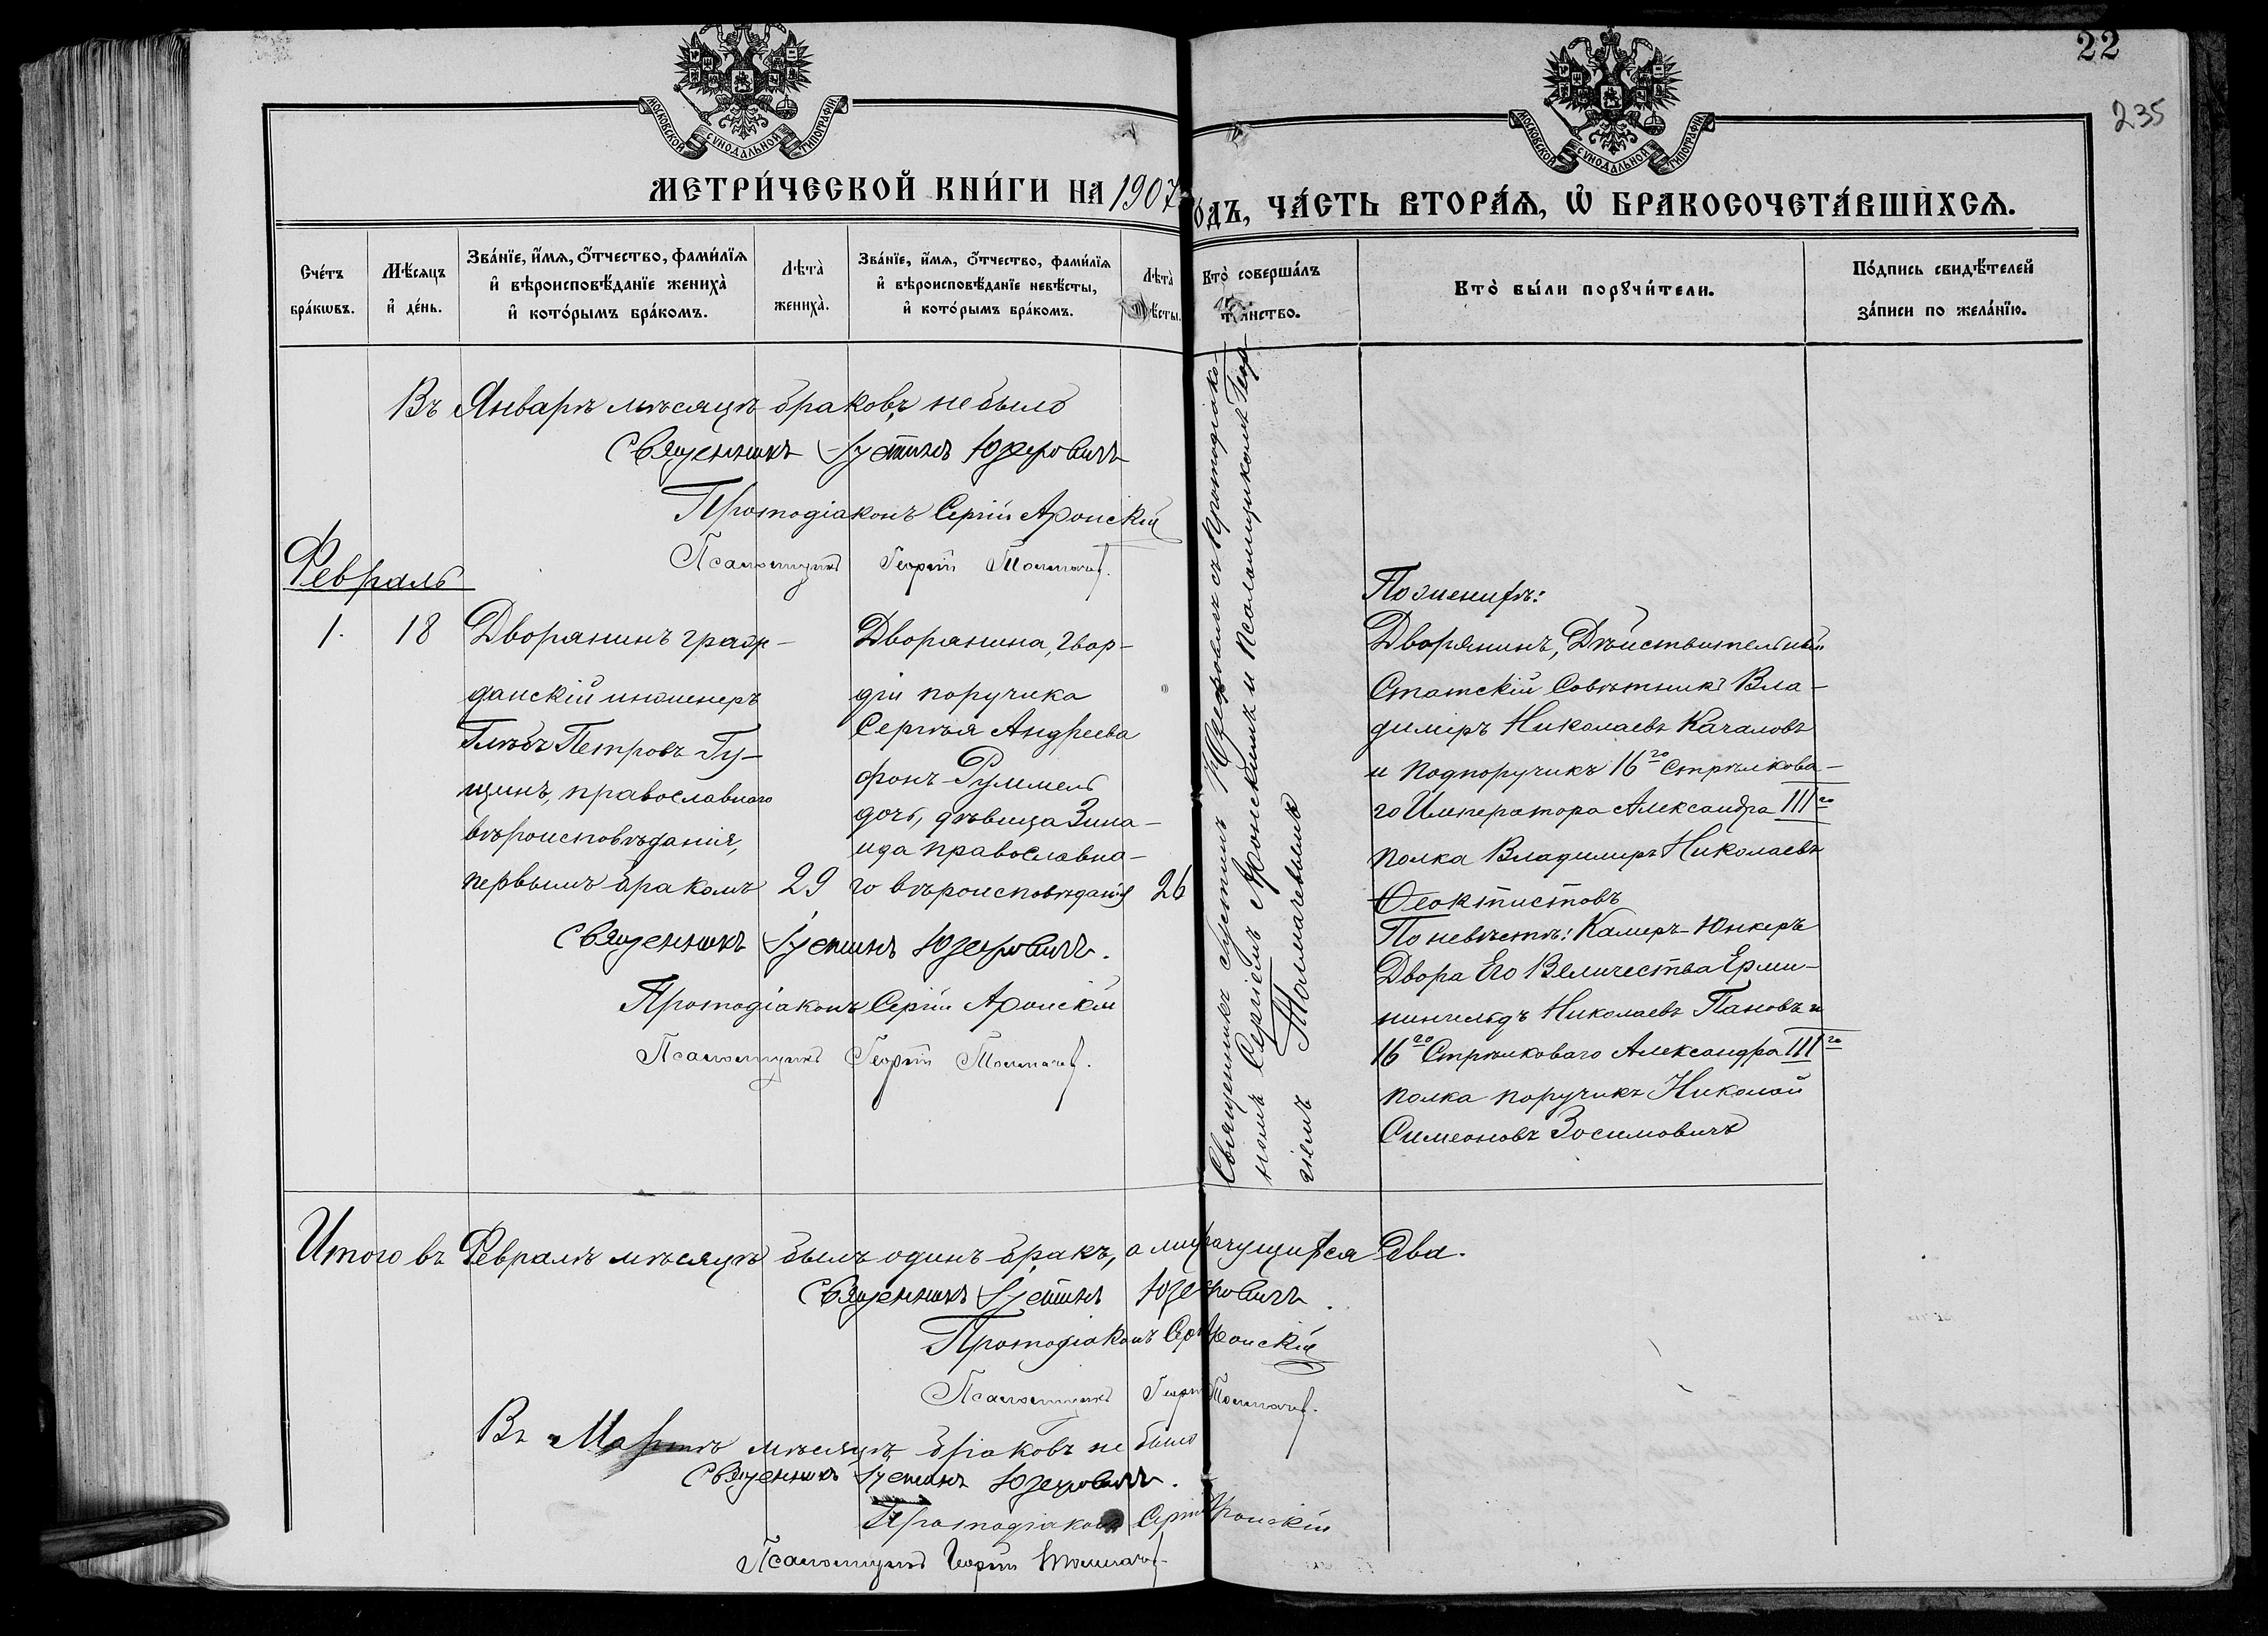 22
235
МОСКОВСКОЙ СѴНОДАЛЬНОЙ ТИПОГРАФІИ
МОСКОВСКОЙ СѴНОДАЛЬНОЙ ТИПОГРАФІИ
МЕТРИ́ЧЕСКОЙ КНИ́ГИ НА 1907
ОДЪ, ЧА́СТЬ ВТОРА́Ѧ, Ѡ҆ БРАКОСОЧЕТА́ВШИХСѦ.
Сче́тъ бра́кѡвъ.
Мѣ́сяцъ и҆ де́нь.
Зва́нїе, и҆́мѧ, ѻ҆́тчество, фами́лїѧ
и҆ вѣроисповѣ́данїе жениха̀
и҆ кото́рымъ бра́комъ.
Лѣта̀ жениха̀.
Зва́нїе, и҆́мѧ, ѻ҆́тчество, фами́лїѧ
и҆ вѣроисповѣ́данїе невѣ́сты,
и҆ кото́рымъ бра́комъ.
Лѣта̀ ѣ́сты.
Кто̀ соверша́лъ
та́инство.
Кто̀ бы́ли порꙋчи́тели.
По́дпись свидѣ́телей
за́писи по жела́нїю.
Въ Январѣ мѣсяцѣ браковъ не было
Священникъ Іустинъ Юзефовичъ
Протодіаконъ Сергій Аронскій
Псаломщикъ Георгій Толмачев.
Февраль
1.
18
Дворянинъ граж-
данскій инженеръ
Глѣбъ Петровъ Гу-
щинъ, православнаго
вѣроисповѣданія,
первымъ бракомъ
29
Дворянина, гвар-
діи поручика
Сергѣя Андреева
фонъ-Руммель
дочь, дѣвица Зина-
ида православна-
го вѣроисповѣданія
26
Священникъ Іустинъ Юзефовичъ.
Протодіаконъ Сергій Аронскій
Псаломщикъ Георгій Толмачев.
Священникъ Іустинъ Юзефовичъ съ Протодіако-
номъ Сергіемъ Аронскимъ и Псаломщикомъ Геор-
гіемъ Толмачевымъ
По женихѣ:
Дворянинъ, Дѣйствительный
Статскій Совѣтникъ Вла-
диміръ Николаевъ Качаловъ
и подпоручикъ 16го Стрѣлкова-
го Императора Александра IIIго
полка Владимиръ Николаевъ
Ѳеоктистовъ
По невѣстѣ: Камеръ-Юнкеръ
Двора Его Величества Ерми-
нингельдъ Николаевъ Пановъ и
16го Стрѣлковаго Александра IIIго
полка поручикъ Николай
Симеоновъ Зосимовичъ
Итого въ Февралѣ мѣсяцѣ былъ одинъ бракъ, а лицъ два.
Священникъ Іустинъ Юзефовичъ.
Протодіаконъ Сергій Аронскій
Псаломщикъ Георгій Толмачев.
Въ Мартѣ мѣсяцѣ браковъ не было
Священникъ Іустинъ Юзефовичъ.
Протодіаконъ Сергій Аронскій
Псаломщикъ Георгій Толмачев